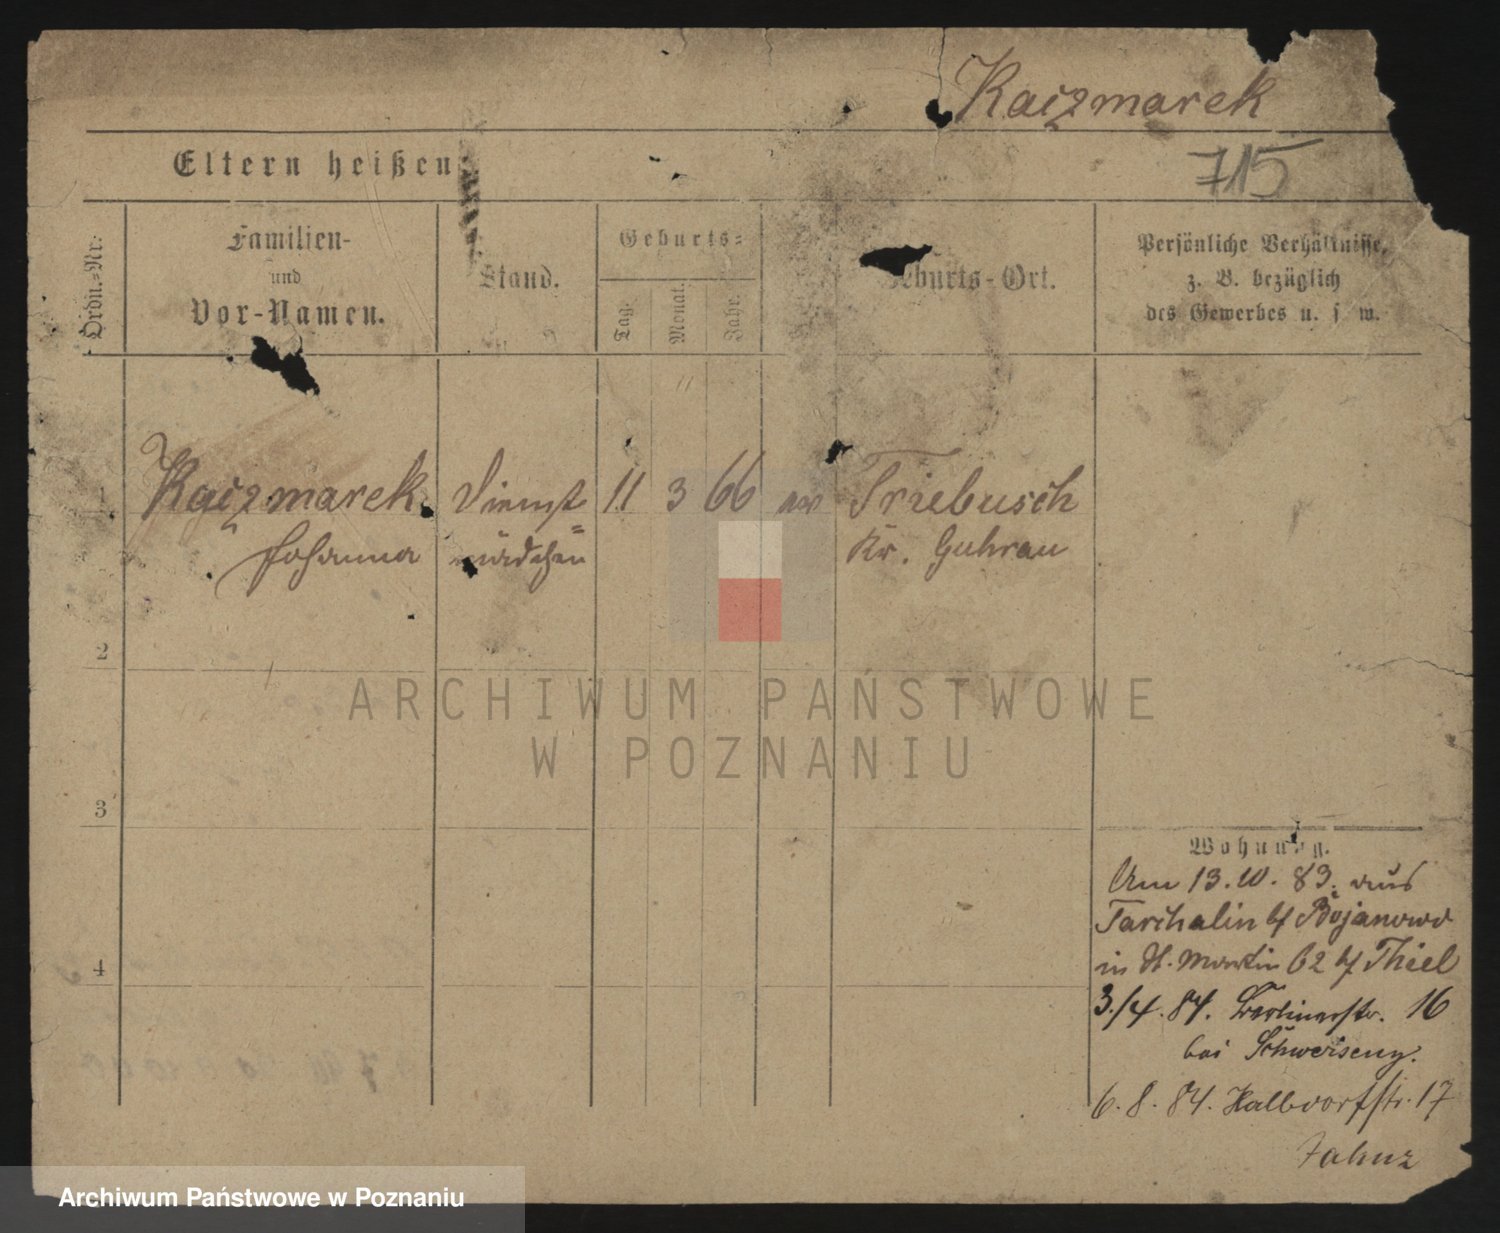 Kaczmarek
Eltern heißen:
715
Ordn.-Nr.
Familien-
und
Vor-Namen.
Stand.
Geburts-
Tag.
Monat.
Jahr.
Geburts-Ort.
Persönliche Verhältnisse,
z. B. bezüglich
des Gewerbes u. s. w.
1 Kaczmarek Dienst 11 3 66 Triebusch
Johanna mädchen Kr. Guhrau
2
ARCHIWUM PAŃSTWOWE
W POZNANIU
3
Wohnung.
Am 13.10.83. aus
Tarchalin b/ Bojanowo
4 in St. Martin 62 b/ Thiel
3./4.84. Berlinerstr. 16
bei
6.8.84. Halbdorfstr. 17
Archiwum Państwowe w Poznaniu